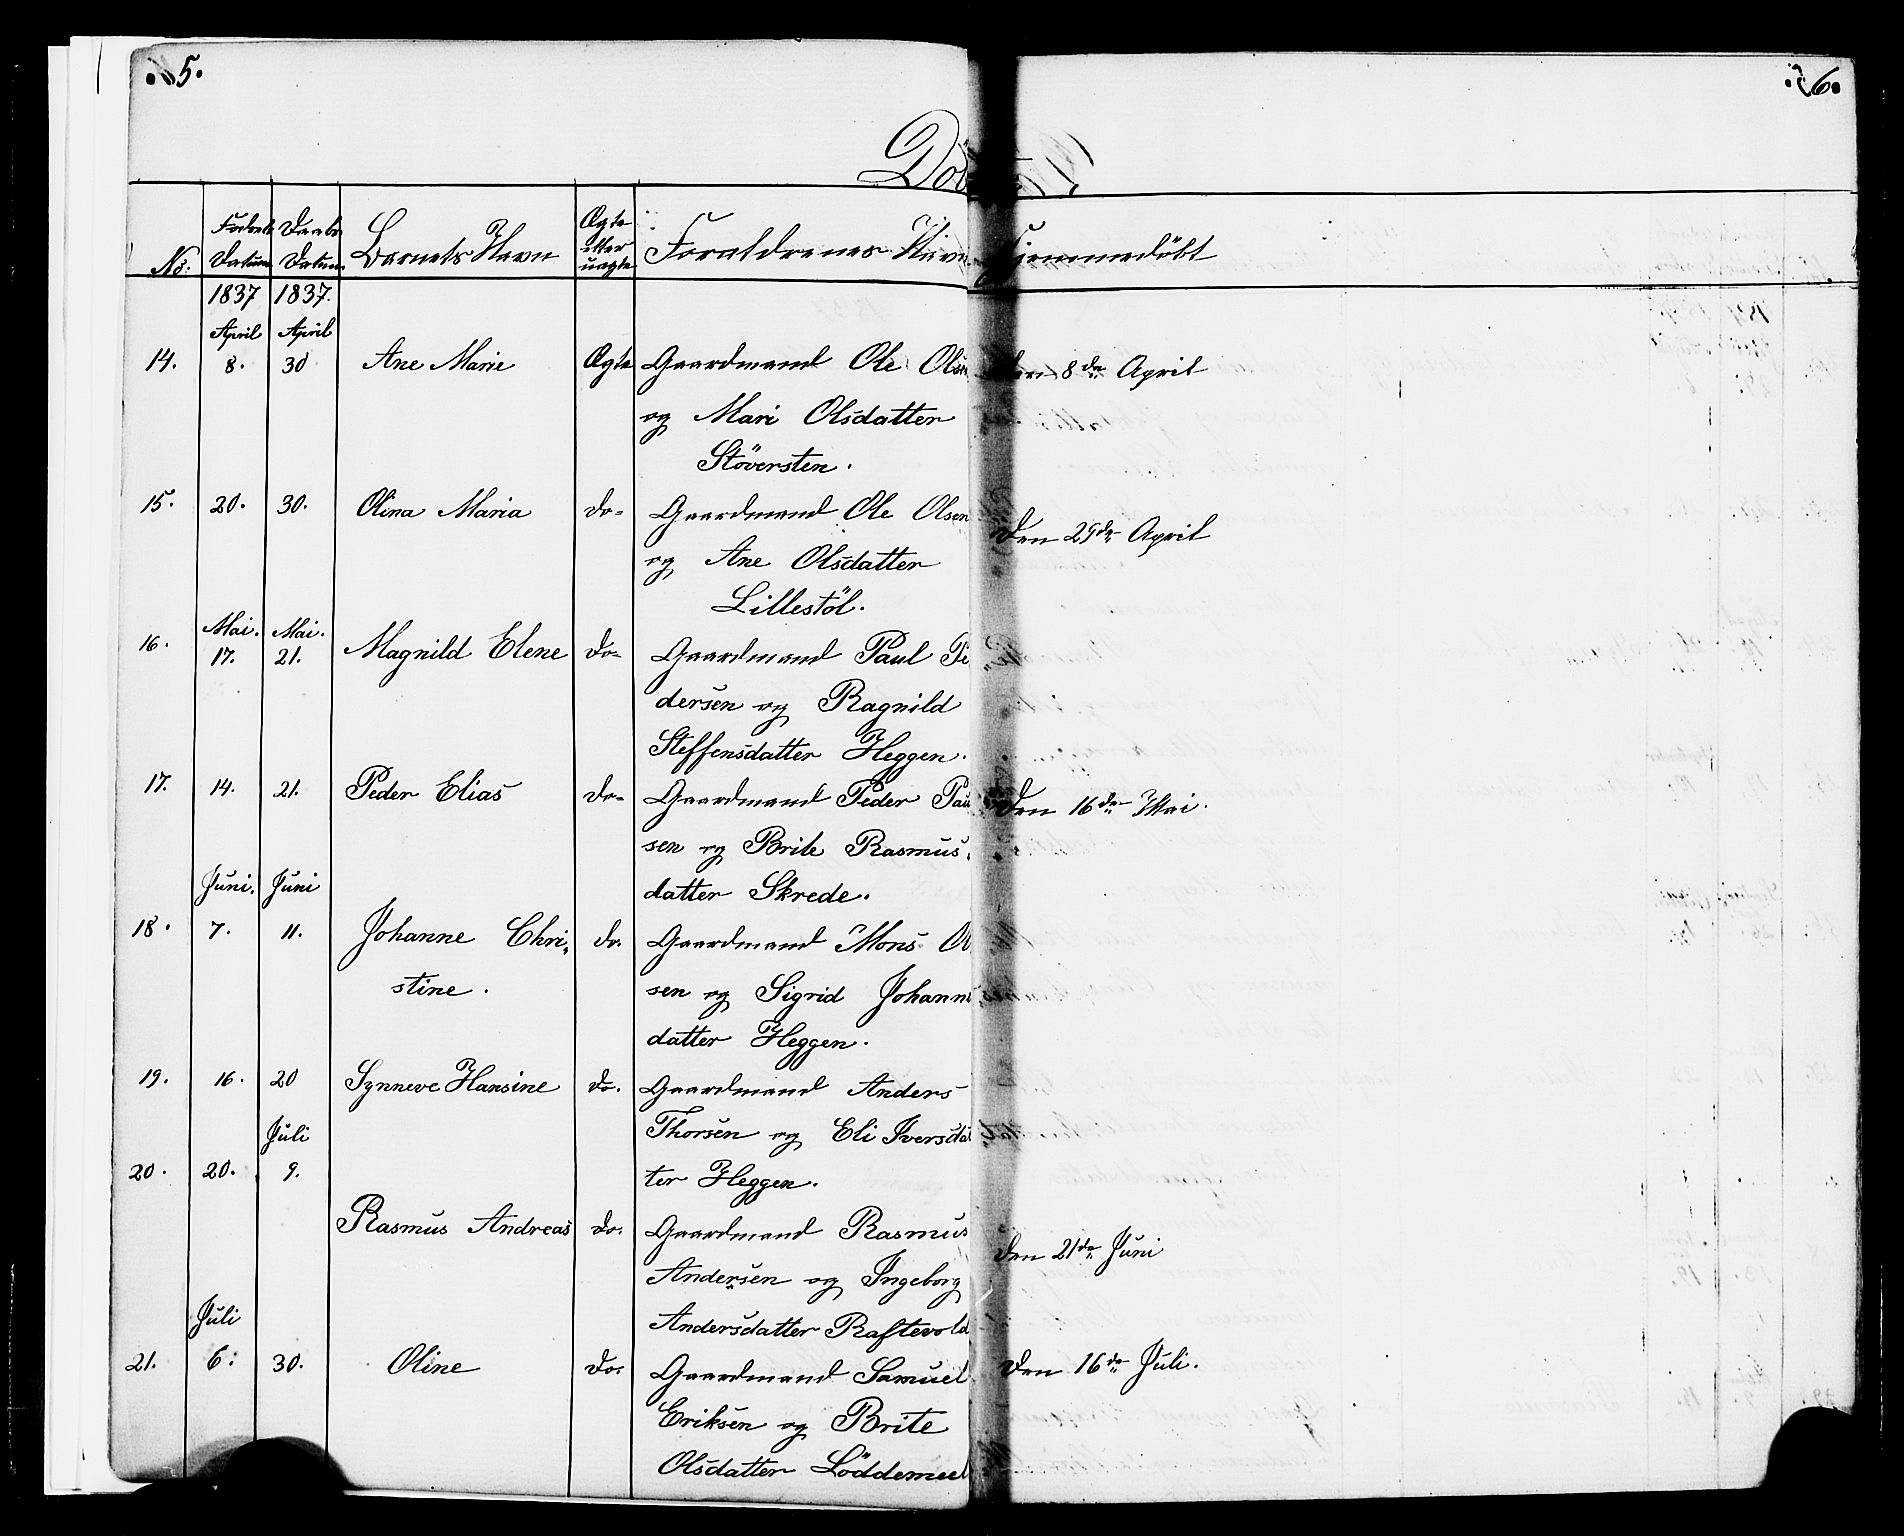 5.
6.
Döbte
No. Födsels Datum Daabs Datum Barnets Navn Ægte eller uægte Forældrenes Navn Hjemmedöbt
1837 1837.
April April
14. 8. 30 Ane Marie Ægte Gaardmand Ole Olsen Den 8de April
og Mari Olsdatter
Stöversten.
15. 20. 30. Olina Maria do- Gaardmand Ole Olsen Den 29de April
og Ane Olsdatter
Lillestöl.
Mai. Mai.
16. 17. 21. Magnild Elene do- Gaardmand Paul Pe
dersen og Ragnild
Steffensdatter Heggen.
17. 14. 21. Peder Elias do- Gaardmand Peder Paul Den 16de Mai.
sen og Brite Rasmus-
datter Skrede.
Juni. Juni
18. 7. 11. Johanne Chri- do. Gaardmand Mons Ol
stine. sen og Sigrid Johannes
datter Heggen.
19. 16. 20 Synneve Hansine do. Gaardmand Anders
Thorsen og Eli Iversdat
Juli
20. 20. 9. ter Heggen.
Rasmus Andreas do. Gaardmand Rasmus Den 21de Juni
Andersen og Ingeborg
Andersdatter Raftevold
Juli
21. 6. 30. Oline do. Gaardmand Samuel Den 16de Juli.
Eriksen og Brite
Olsdatter Löddemeel